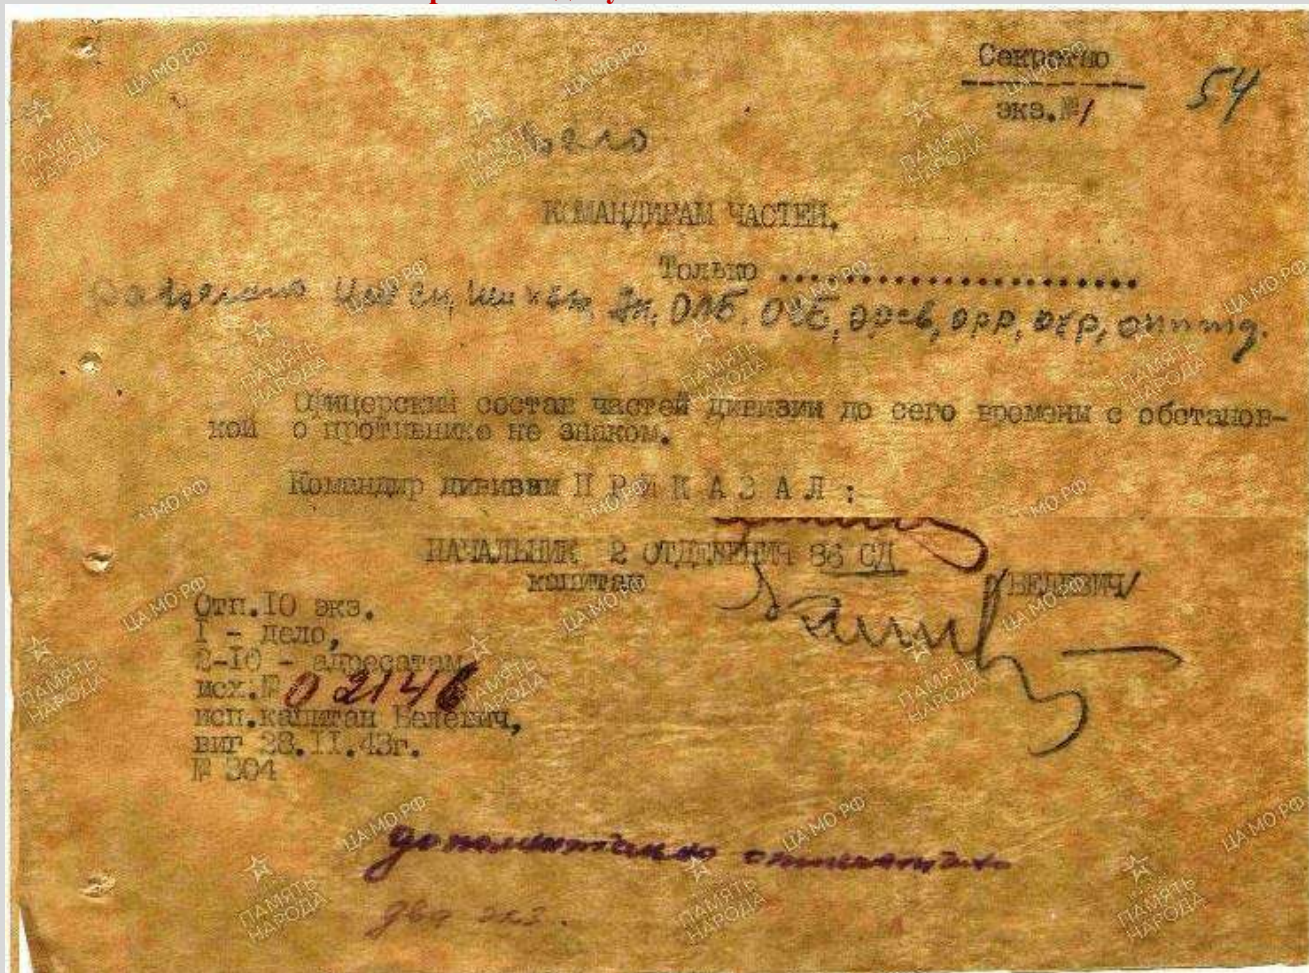 Секретно
54
экз.№1
Дело
КОМАНДИРАМ ЧАСТЕЙ.
Только ......................
ОЛБ, ОСБ,
Офицерский состав частей дивизии до сего времени с обстанов-
кой о противнике не знаком.
Командир дивизии П Р И К А З А Л :
НАЧАЛЬНИК 2 ОТДЕЛЕНИЯ 86 СД
капитан /БЕЛЕВИЧ/
Отп.10 экз.
1 - дело,
2-10 - адресатам
исх.№ 02146
исп.капитан Белевич,
виг 28.11.43г.
№ 304
дополнительно отпечатано
два экз.